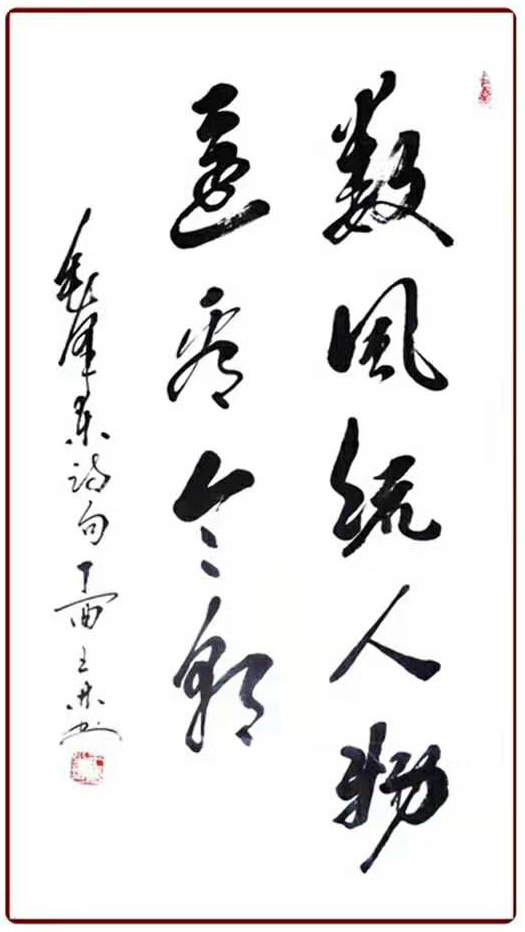 数風流人物
還看今朝
毛泽东诗句丁酉